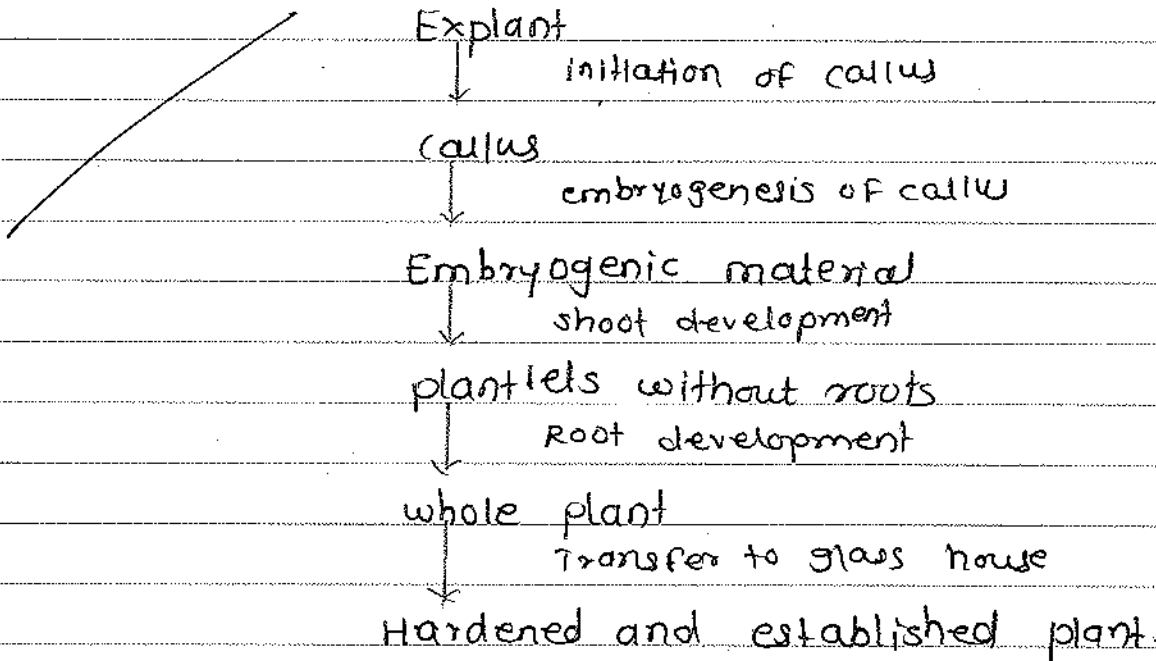 Explant
initiation of callus
callus
embryogenesis of callus
Embryogenic material
shoot development
plantlets without roots
Root development
whole plant
Transfer to glass house
Hardened and established plant.